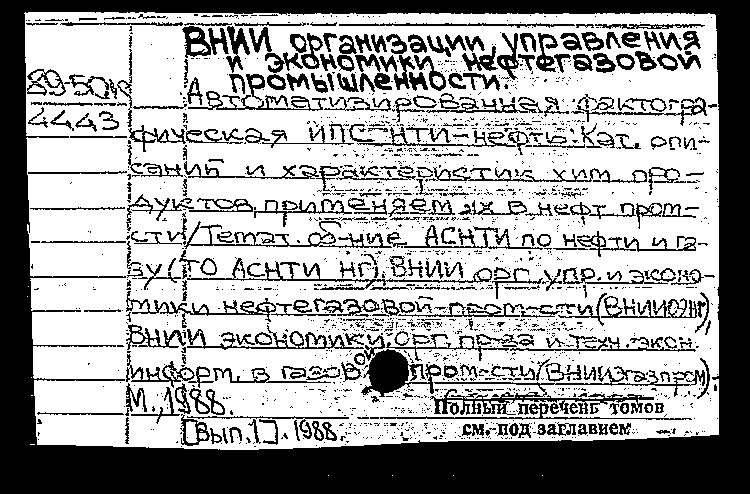 ВНИИ организации, управления
и экономики нефтегазовой
промышленности.
89-50ж
4443
Автоматизированная фактогра-
фическая ИПС НТИ-нефть: Кат. опи-
саний и характеристик хим. про-
дуктов, применяемых в нефт пром-
сти/Темат. об-ние АСНТИ по нефти и га-
зу (ТО АСНТИ НГ), ВНИИ орг., упр. и эконо-
мики нефтегазовой пром-сти (ВНИИОЭНГ),
ВНИИ экономики, орг. пр-ва и техн.-экон.
информ. в газовой пром-сти (ВНИИЭгазпром).-
М., 1988.
Полный перечень томов
[Вып. 1]. 1988.
см. под заглавием